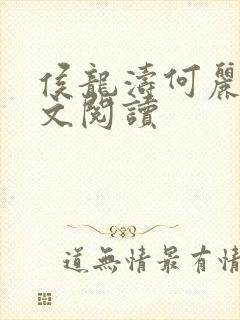 侯龍濤何麗
文閱讀
道無情最有情